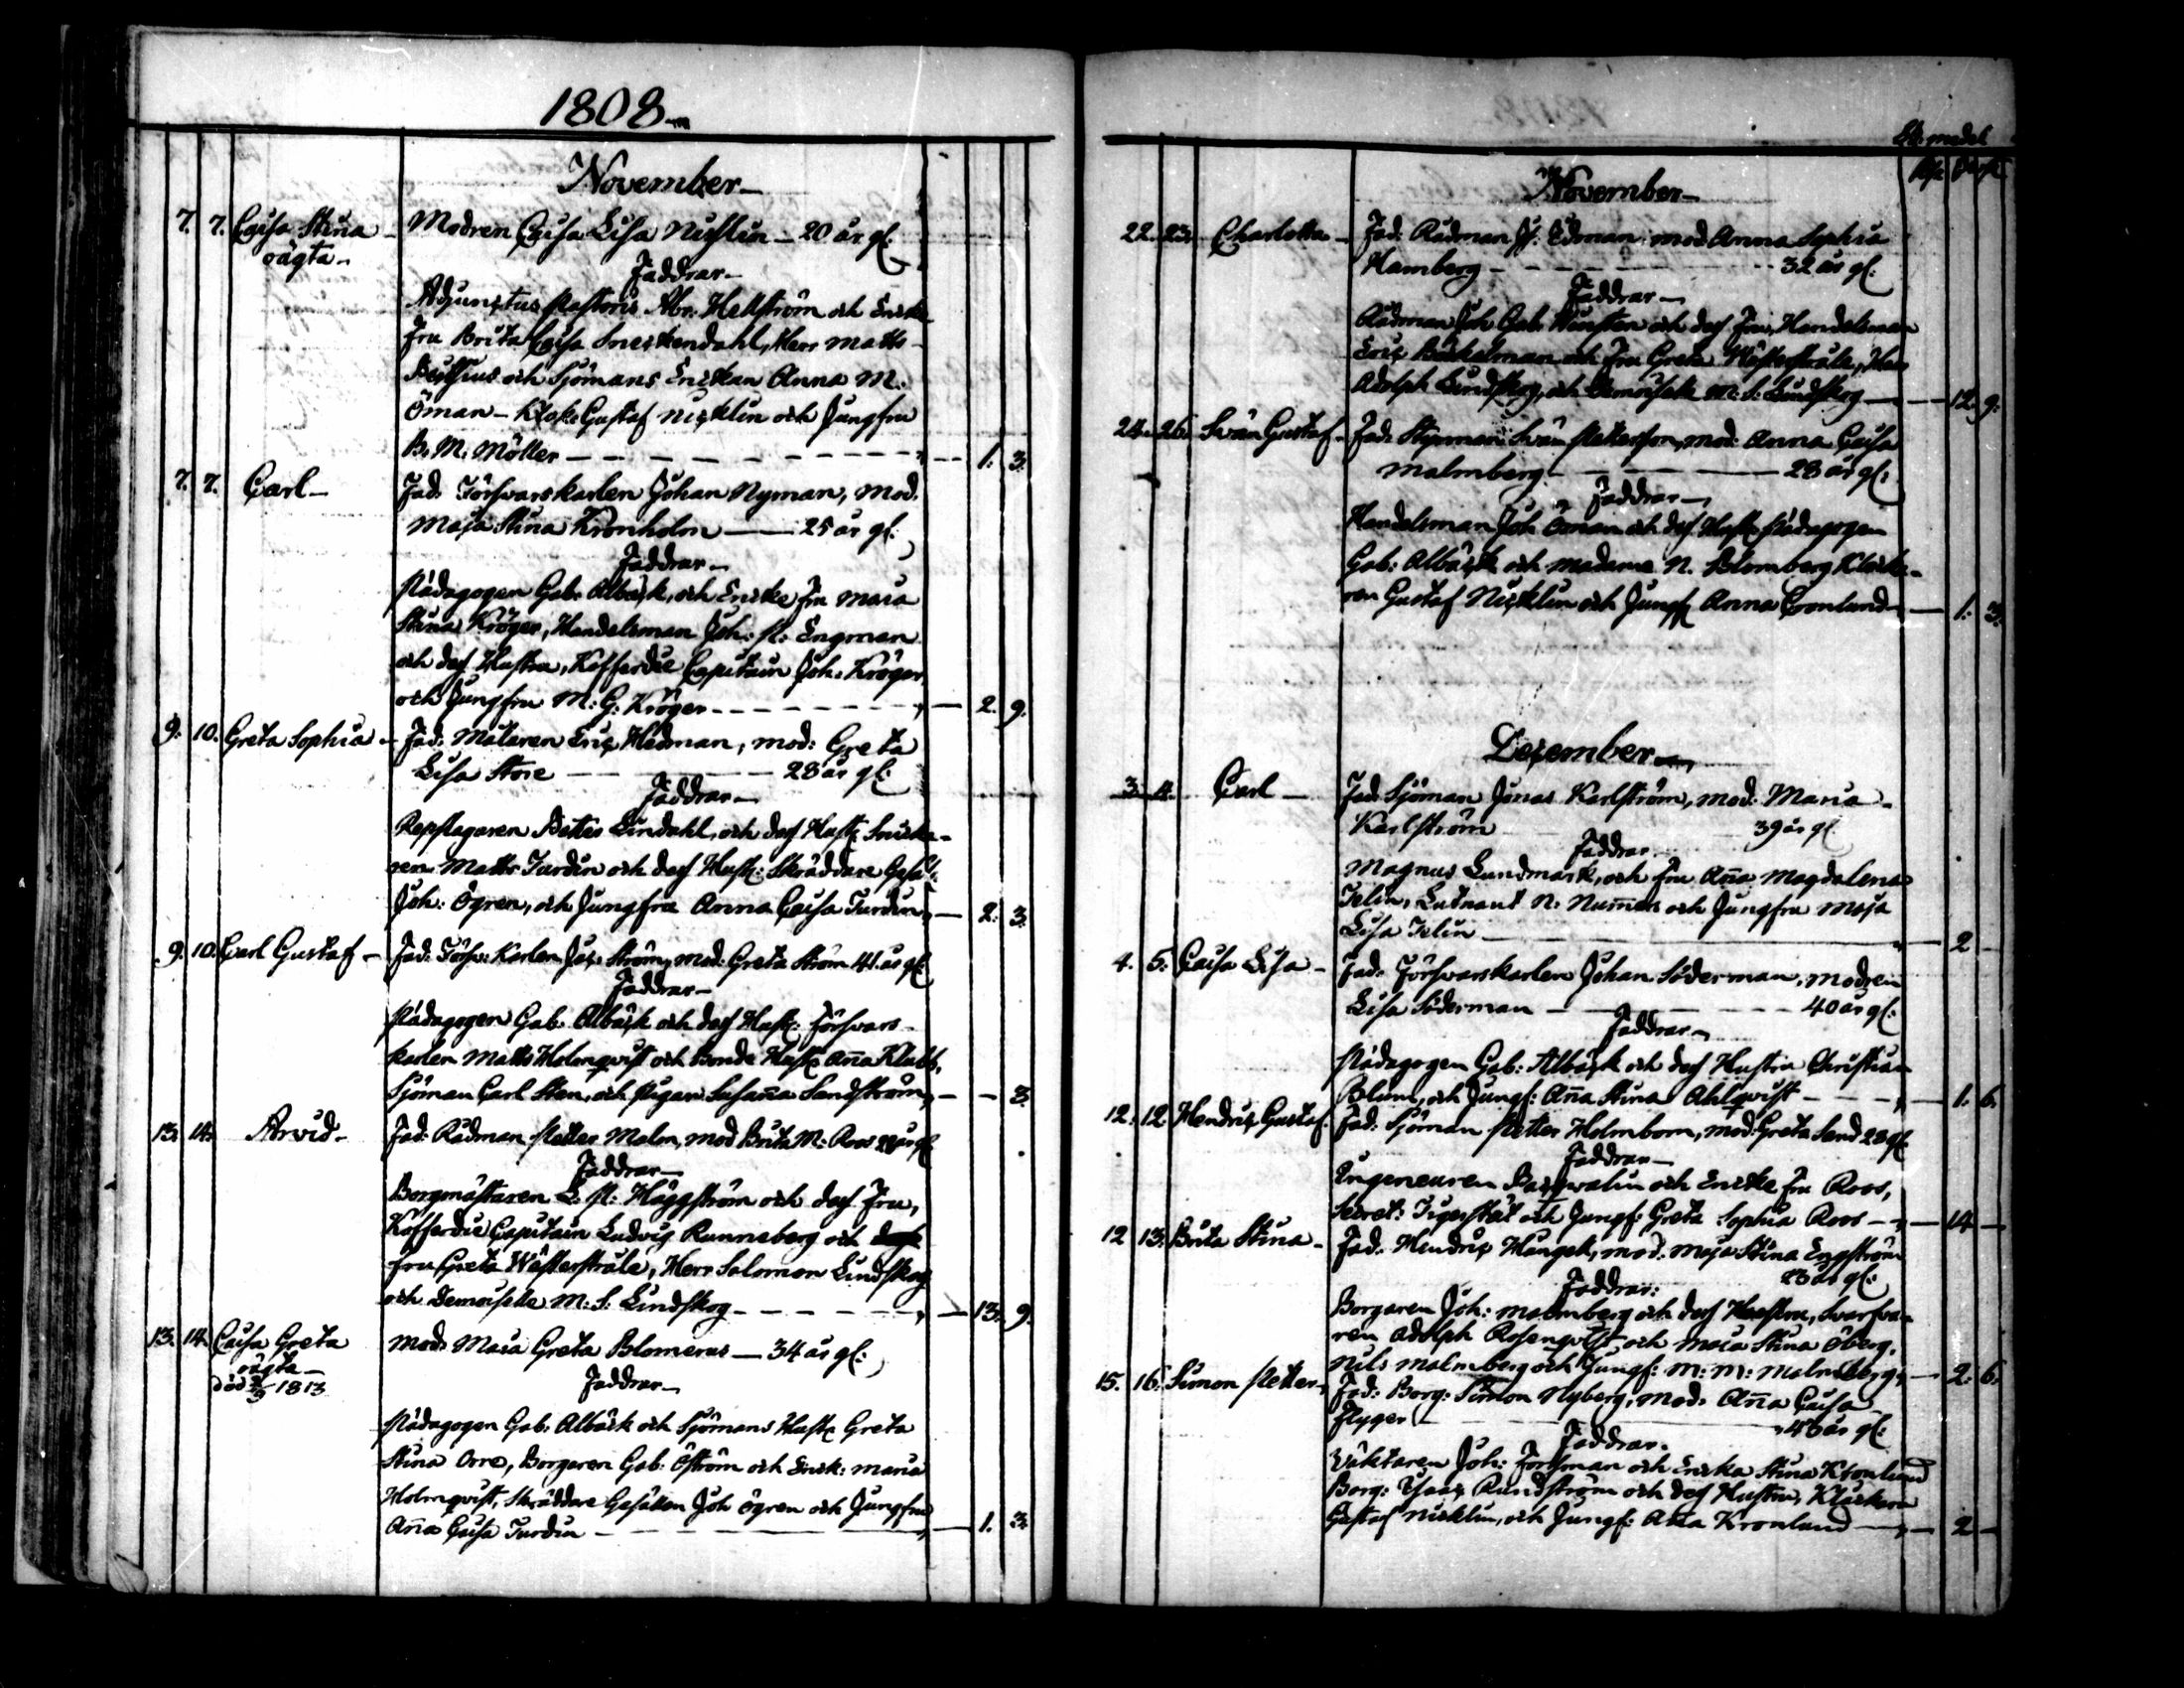 1808
November
7. 7. Caisa Stina Modren Caisa Lisa Nicklin 20 år gl:
oägta
Faddrar
Adjunctus Pastoris Abr. Hellström och Encke
fru Brita Caisa Snickendahl, Herr Matts
och Sjömans Enckan Anna M.
Öman Klok. Gustaf Nicklin och Jungfru
B. M. Möller 1. 3.
7. 7. Carl Fad. Försvarskarlen Johan Nyman, mod.
Maja Stina Kronholm 25 år gl:
Faddrar
Pädagogen Gab. Albäck, och Encke fru Maria
Stina Kröger, Handelsman Joh: P: Engman
och dess Hustru, Kofferdie Capitain Joh. Kröger
och Jungfru M: G: Kröger 2. 9.
9. 10. Greta Sophia Fad. Målaren Eric Hedman, mod: Greta
Lisa Store 28 år gl:
Faddrar
Repslagaren Petter Lindahl, och dess Hust: Snicka-
ren Matts Turdin och dess Hust: Skräddare Gesäl:
Joh: Ögren, och Jungfru Anna Caisa Turdin 2. 3.
9. 10. Carl Gustaf Fad. Försv: Karlen Jac. Ström, mod: Greta Ström 41. år gl:
Faddrar
Pädagogen Gab. Albäck och dess Hust: Försvars-
karlen Matts Holmqvist och Bonde Hust: Aña Klabb,
Sjöman Carl Sten, och Pigan Susaña Sandström 3.
13. 14. Arvid Fad: Rådman Petter Malm, mod Brita M: Roos år gl:
Faddrar
Borgmästaren L. P: Häggström och dess Fru,
Kofferdie Capitain Ludvig Runneberg och
fru Greta Wästerstråle, Herr Salomon Lindskog
och Demoiselle M: S: Lindskog 13. 9.
13. 14. Caisa Greta mod: Maria Greta Blomerus 34 år gl:
oägta
död 1813
Faddrar
Pädagogen Gab. Albäck och Sjömans Hust: Greta
Stina Orre, Borgaren Gab: Öström och Enck: Maria
Holmqvist, Skräddare Gesällen Joh Ögren och Jungfru
Aña Caisa Turdin 1. 3.
November
22. 23. Charlotta Fad. Rådman Edman mod Anna Sophia
Hamberg 32 år gl:
Faddrar
Rådman Joh Gab och dess fru, Handelsman
Eric Backelman och Fru Greta Wästerstråle, Herr
Adolph Lindskog, och Demoiselle M: S: Lindskog 12. 9.
24. 26. Svän Gustaf Fad: Styrman Svän Pettersson, mod: Anna Caisa
Malmberg 28 år gl:
Faddrar
Handelsman Joh Öman och dess Hust: Pädagogen
Gab: Albäck och Madame N. Blomberg Klocka-
ren Gustaf Nicklin och Jungf: Anna Cronlund 1. 3.
December
3. 4. Carl Fad: Sjöman Jonas Karlström, mod: Maria
Karlström 39 år gl:
Faddrar
Magnus Lundmark, och fru Aña Magdalena
Telin, Lutnant N: och Jungfru Maja
Lisa Telin 2
4. 5. Caisa Lisa Fad. Försvarskarlen Johan Söderman, modren
Lisa Söderman 40 år gl:
Faddrar
Pädagogen Gab: Albäck och dess Hustru Christian
Blom, och Jungf: Aña Stina Ahlqvist 1. 6.
12. 12. Hendric Gustaf. Fad. Sjöman Petter Holmbom, mod: Greta Sand 28 gl:
Faddrar
Ingeneuren och Encke fru Roos,
Secret: Tigerstät och Jungf: Greta Sophia Roos 14
12 13. Brita Stina Fad. Hendric Hangelt, mod: Maja Stina Engström
23 år gl:
Faddrar:
Borgaren Joh: Malmberg och dess Hustru, Svarfva-
ren Adolph Rosenqvist och Maria Stina Öberg,
Nils Malmberg och Jungf: M: M: Malmberg 2. 6.
15. 16. Simon Petter Fad: Borg: Simon Nyberg, mod: Aña Caisa
Flyger år gl:
Faddrar
Väktaren Joh: Forsman och Encka Stina Kronlund
Borg: Isaac Rundström och dess Hustru, Klockaren
Gustaf Nicklin, och Jungf: Aña Kronlund 2